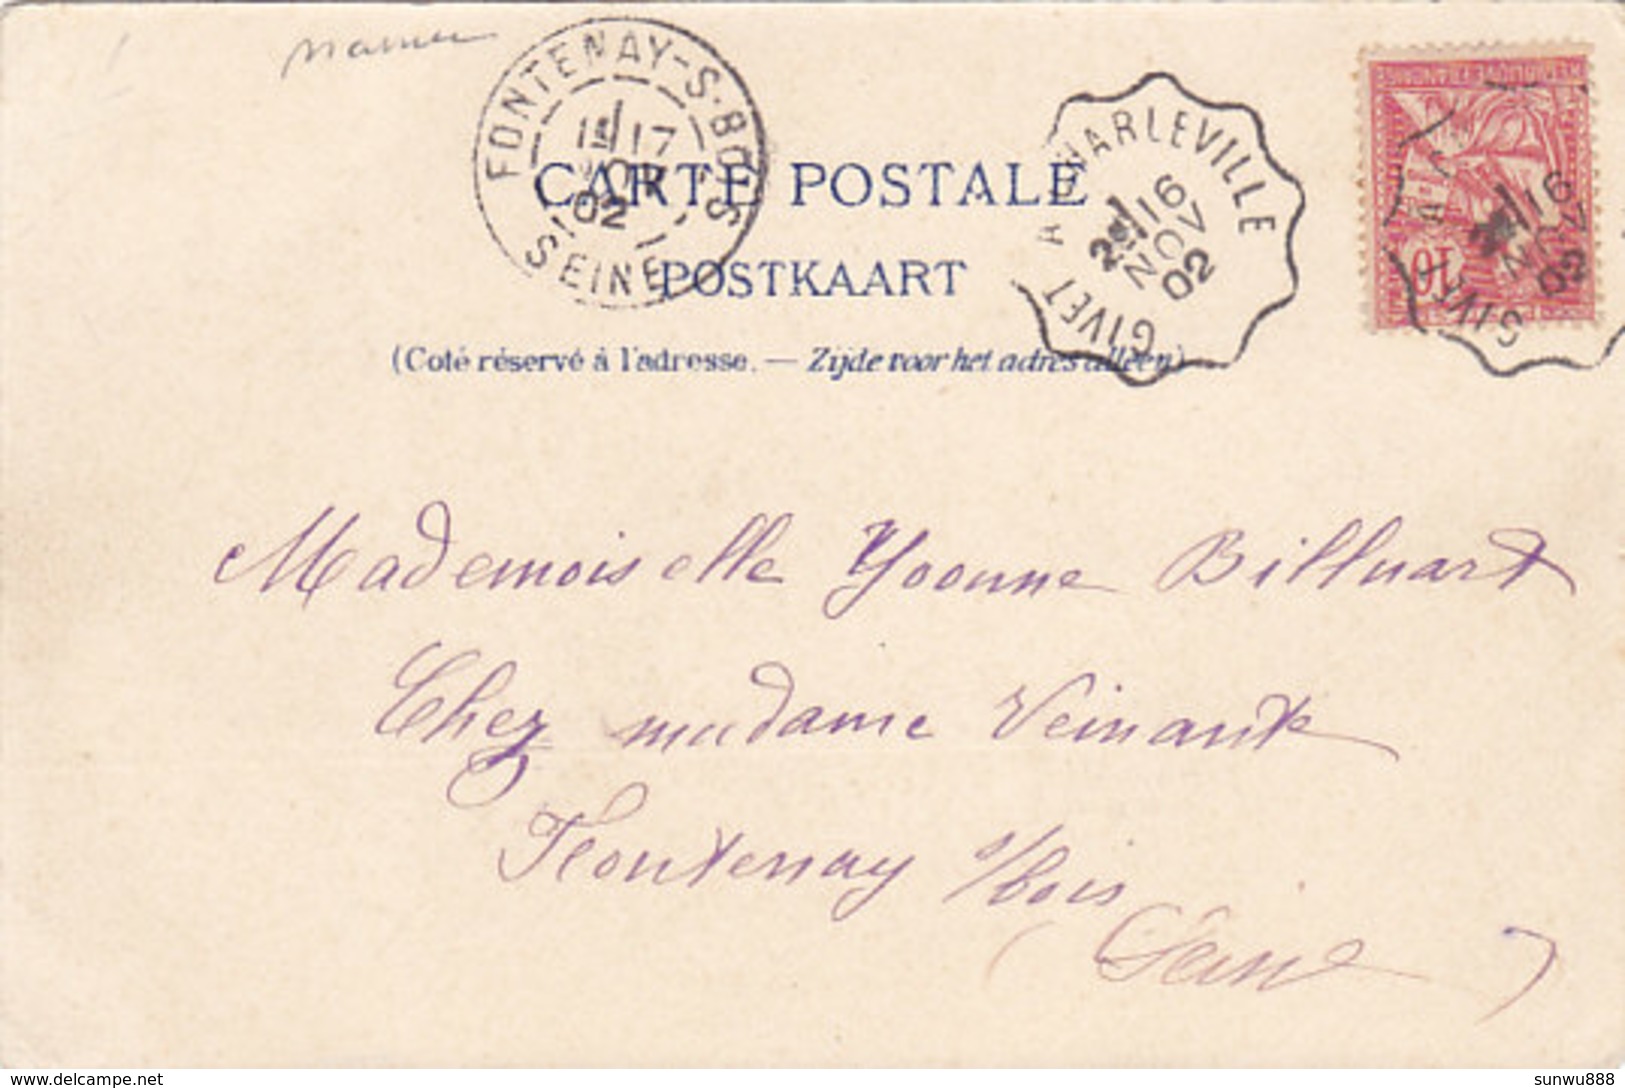 Namur
FONTENAY-S-BOIS
17
02
SEINE
CARTE POSTALE
POSTKAART
(Coté réservé à l'adresse. — Zijde voor het adres alléén)
GIVET A CHARLEVILLE
2E 16
NOV
02
10
GIVET A
16
NOV
02
Mademoiselle Yvonne Billuart
Chez madame
Fontenay s/bois
(Seine)
sunwu888
delcampe.net